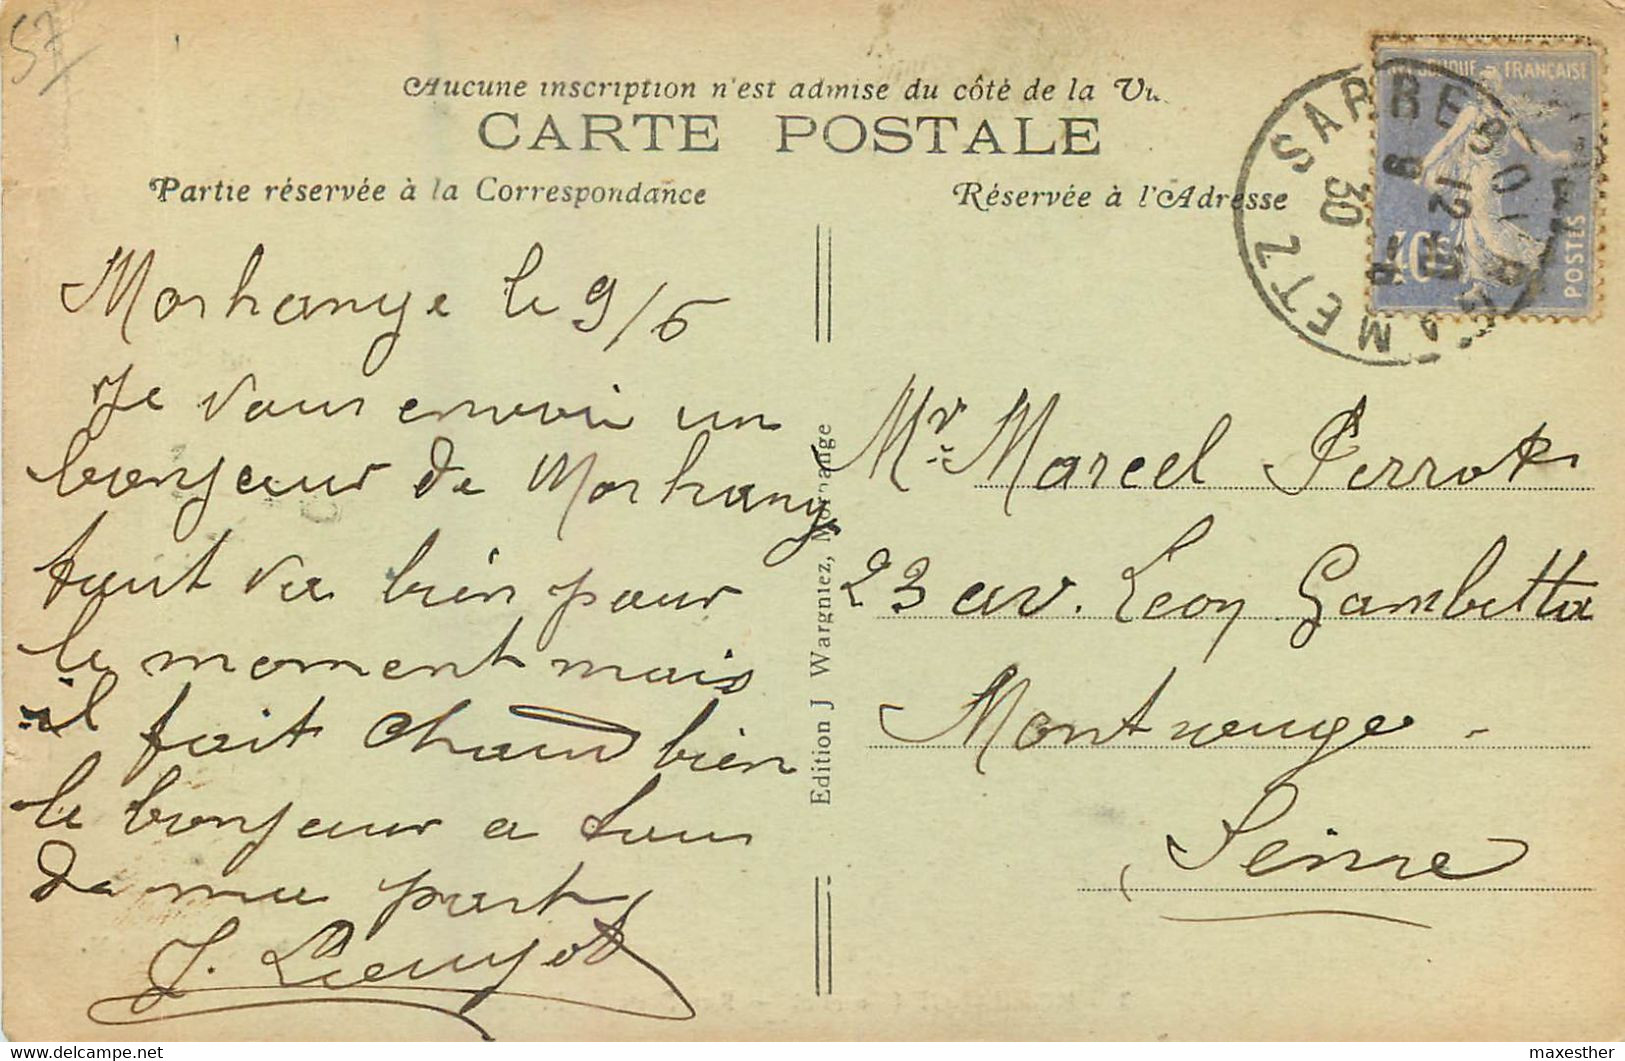 57
Aucune inscription n'est admise du côté de la Vu
CARTE POSTALE
Partie réservée à la Correspondance
Réservée à l'Adresse
REPUBLIQUE FRANÇAISE
POSTES
40c
SARREBOURG À METZ
12 30
Morhange le 9/6
Je vous envoi un
bonjour de Morhange
tout va bien pour
le moment mais
il fait chaud bien
le bonjour a tous
de ma part
J.
Edition J Wargniez, Morhange
Mr. Marcel Perrot
23 av. Leon Gambetta
Montrouge -
Seine
delcampe.net
maxesther